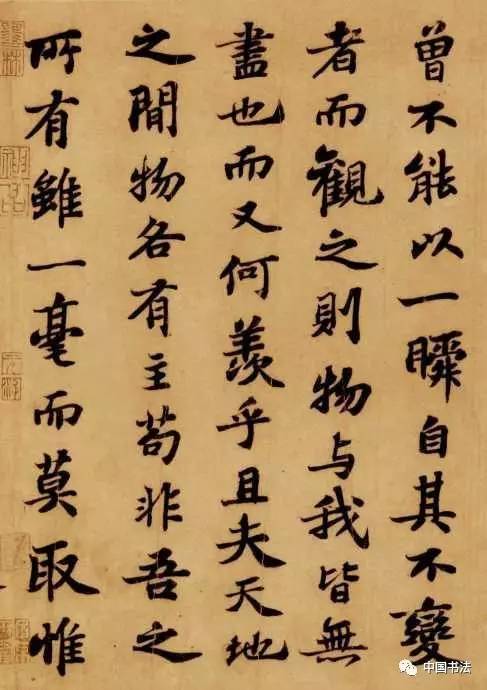 曾不能以一瞬自其不變
者而觀之則物与我皆無
盡也而又何羨乎且夫天地
之間物各有主苟非吾之
所有雖一毫而莫取惟
中国书法